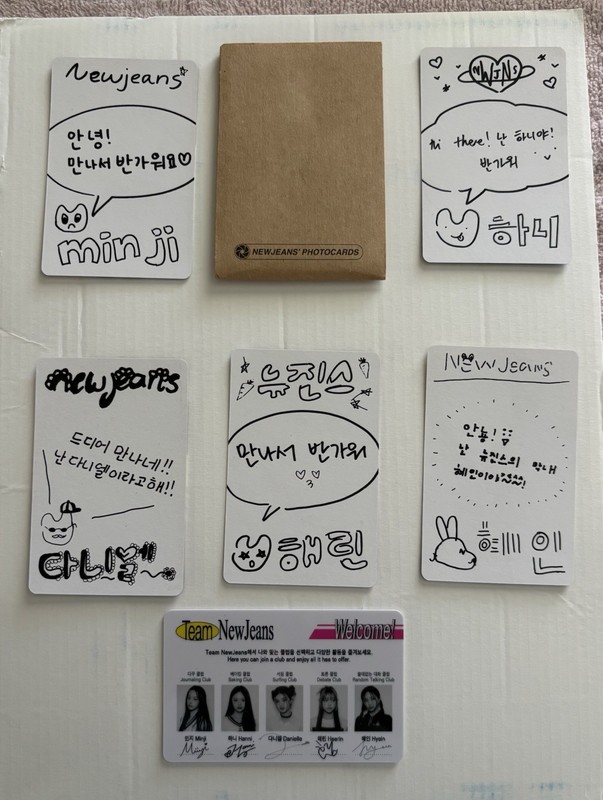 Newjeans
안녕!
만나서 반가워요♡
minji
NEWJEANS' PHOTOCARDS
NWJNS
Hi there! 난 하니야!
반가워
하니
newjeans
드디어 만나네!!
난 다니엘이라고해!!
다니엘
뉴진스
만나서 반가워
해린
NEWJeans
안뇽!
난 뉴진스의 막내
혜인이야
혜인
Team NewJeans
Welcome!
Team NewJeans에서 나와 맞는 클럽을 선택하고 다양한 활동을 즐겨보세요.
Here you can join a club and enjoy all it has to offer.
지구 클럽 베이킹 클럽 서핑 클럽 토론 클럽 쓸데없는 대화 클럽
Journaling Club Baking Club Surfing Club Debate Club Random Talking Club
민지 Minji 하니 Hanni 다니엘 Danielle 해린 Haerin 혜인 Hyein